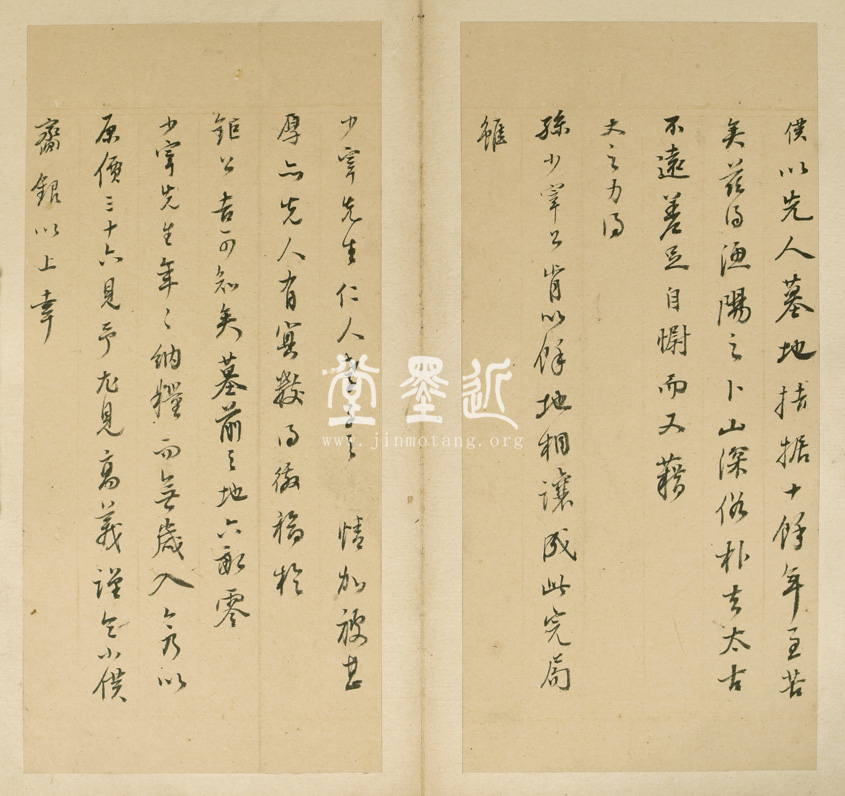 僕以先人墓地拮据十餘年至苦
矣茲得漁陽之卜山深俗朴去太古
不遠差足自慰而又藉
大之力得
孫少宰公肯以餘地相讓成此完局
雖
少宰先生仁人孝子之情加被甚
厚亦先人有冥數得徼福於
鉅公吉可知矣墓前之地六畝零
少宰先生年年納糧而無歲入今乃以
原價三十六見予尤見高義謹令小僕
齋銀以上幸
近墨堂
www.jinmotang.org